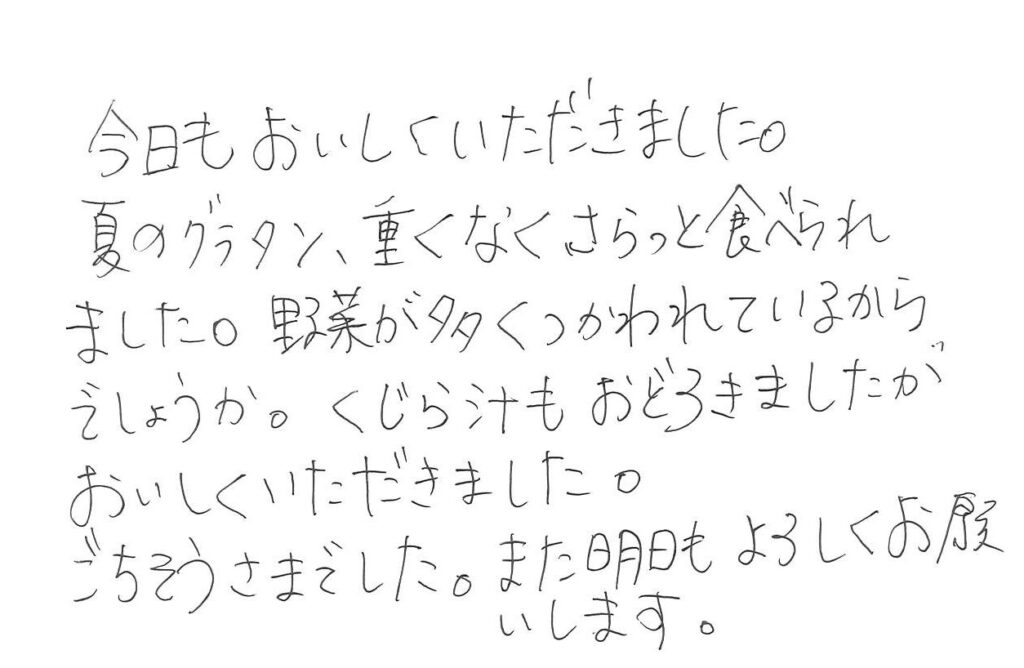 今日もおいしくいただきました。
夏のグラタン、重くなくさらっと食べられ
ました。野菜が多くつかわれているから
でしょうか。くじら汁もおどろきましたが
おいしくいただきました。
ごちそうさまでした。また明日もよろしくお願
いします。